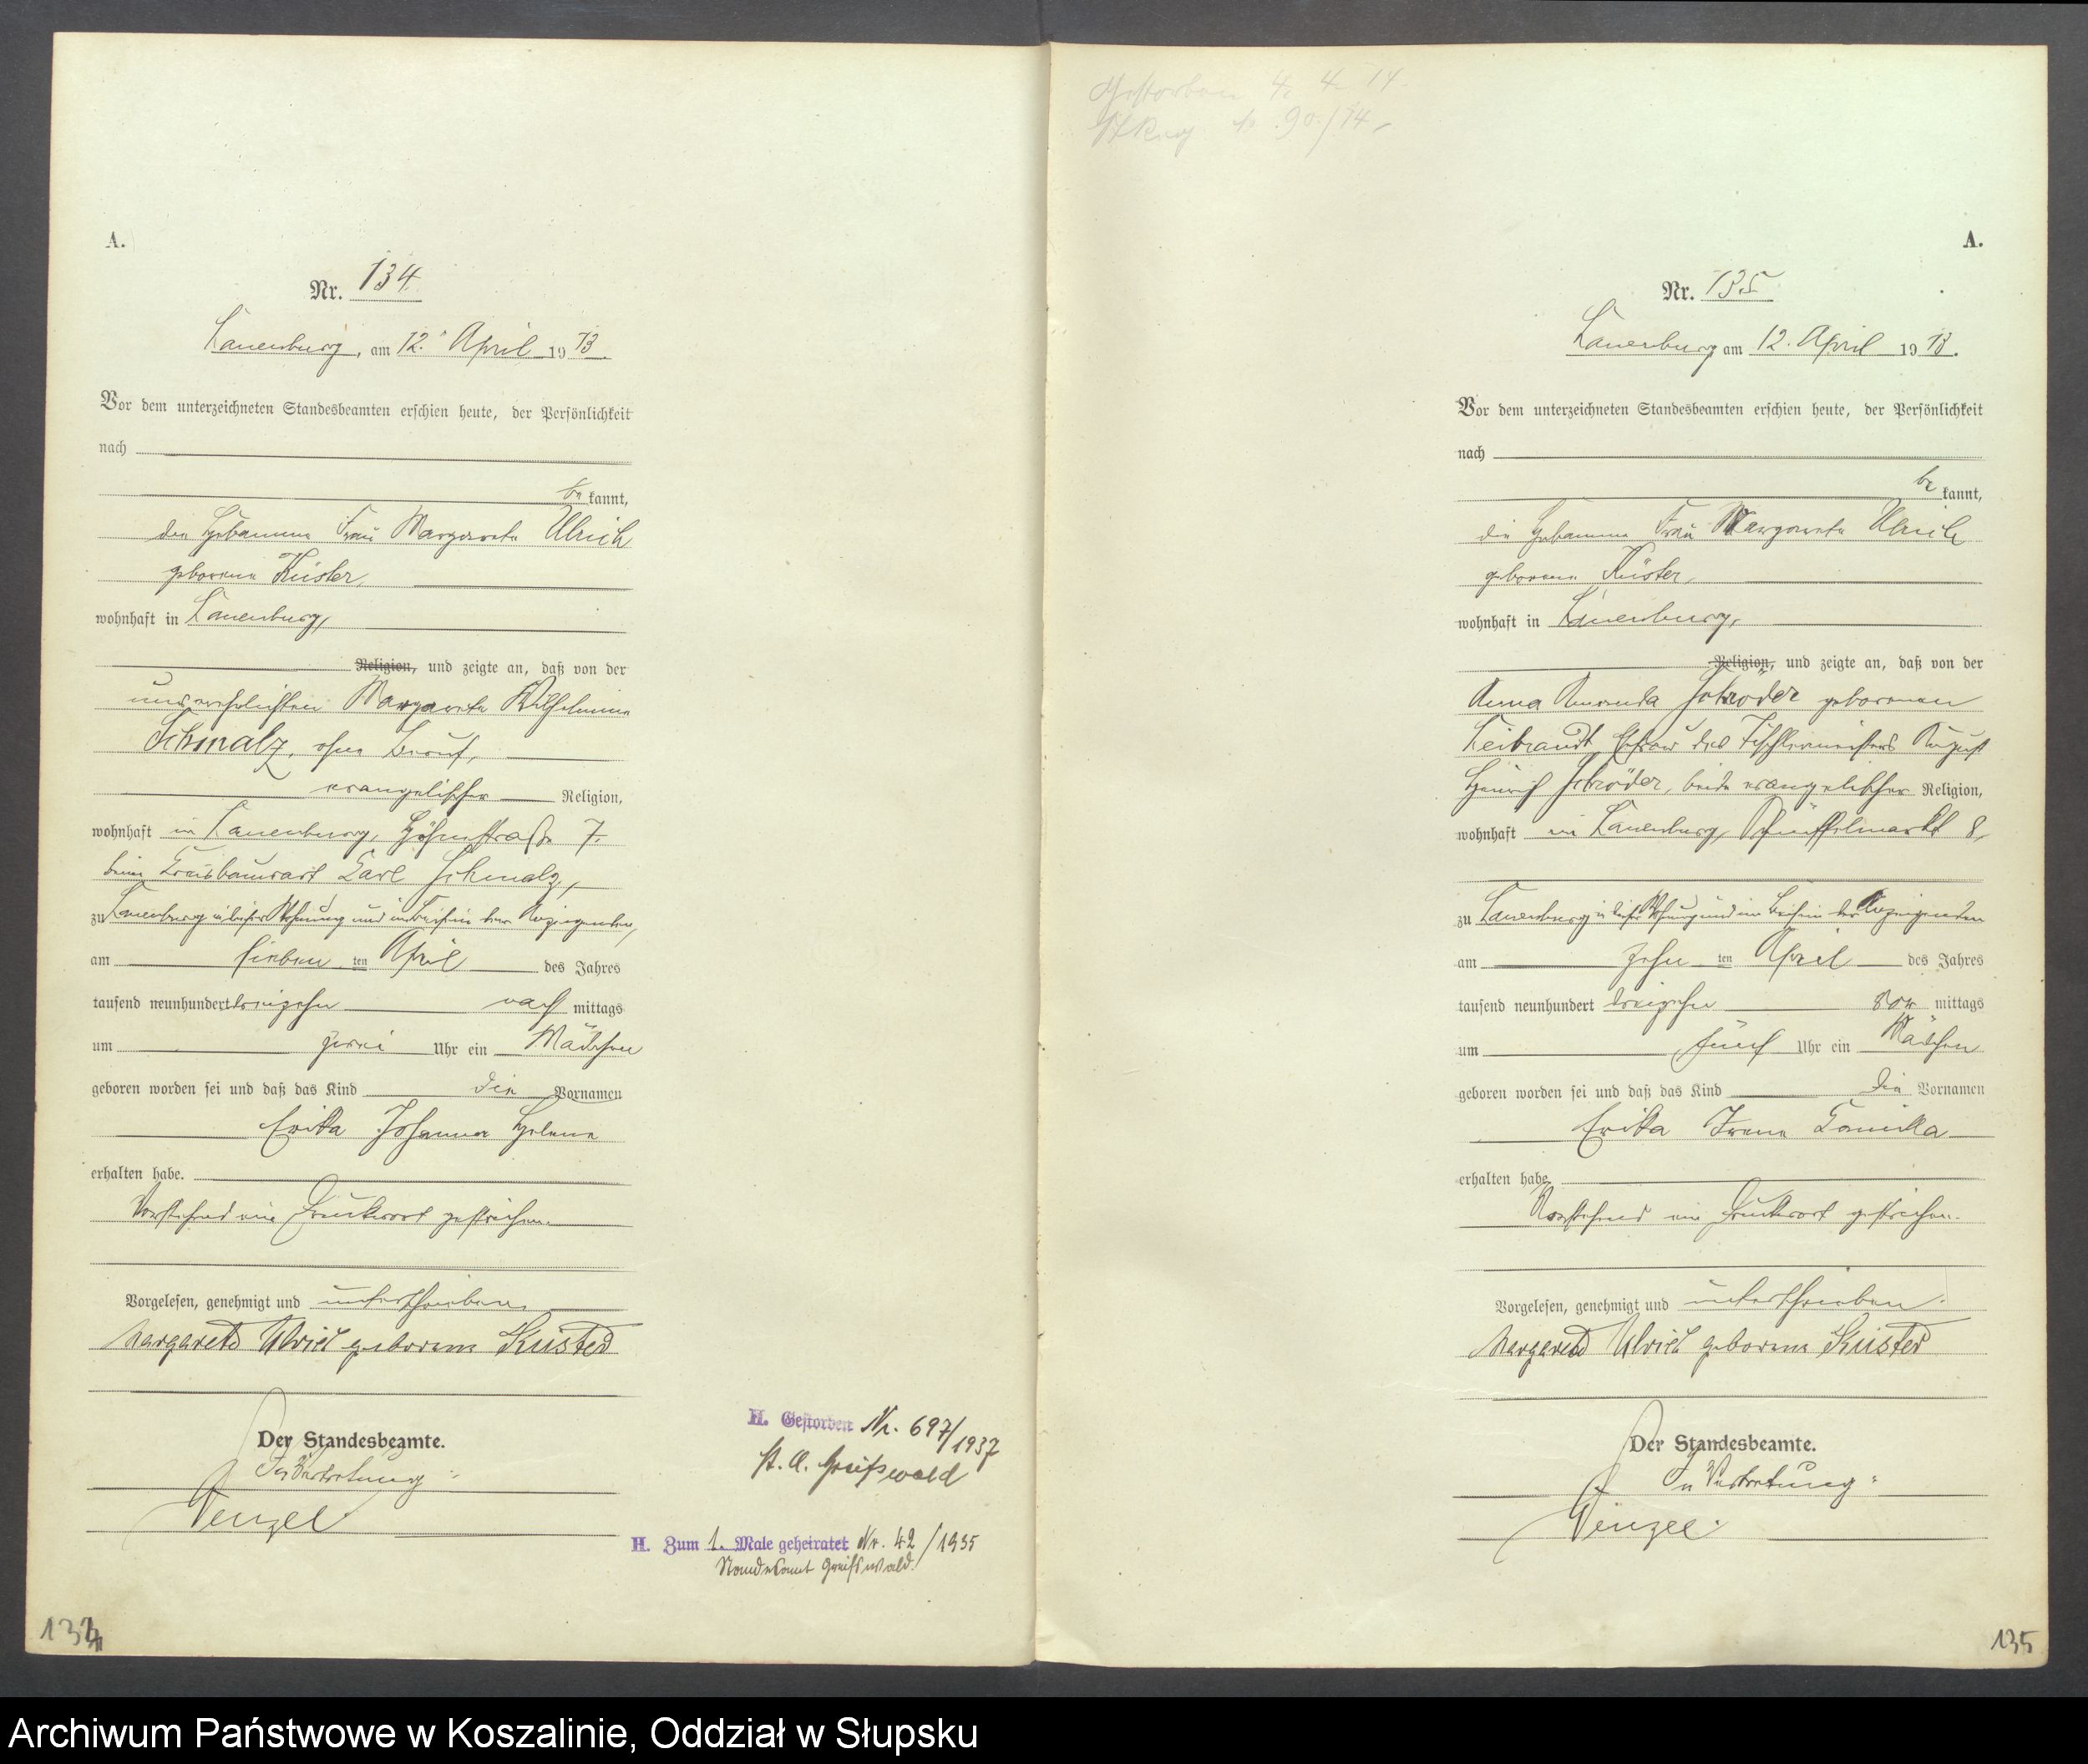 A.
Nr. 134.
Lauenburg, am 12. April 1913.
Vor dem unterzeichneten Standesbeamten erschien heute, der Persönlichkeit
nach
bekannt,
die Hebamme Frau Margarete Ulrich
geborene Küster,
wohnhaft in Lauenburg,
Religion, und zeigte an, daß von der
unverehelichten Margarete Wilhelmine
Schmalz, ohne Beruf,
evangelischer Religion,
wohnhaft in Lauenburg, Höhenstraße 7.
beim Kreisbauwart Carl Schmalz,
zu Lauenburg in dieser Wohnung und im Beisein der Anzeigenden,
am sieben ten April des Jahres
tausend neunhundert dreizehn nach mittags
um zwei Uhr ein Mädchen
geboren worden sei und daß das Kind die Vornamen
Erika Johanna Helene
erhalten habe.
Vorstehend ein Druckwort gestrichen.
Vorgelesen, genehmigt und unterschrieben.
Margarete Ulrich geborene Küster
Der Standesbeamte.
In Vertretung:
Wenzel
H. Gestorben Nr. 697/1937
St. A. Greifswald
H. Zum 1. Male geheiratet Nr. 42/1935
Standesamt Greifswald.
134
Gestorben 4. 4. 14.
90/14.
A.
Nr. 135
Lauenburg am 12. April 1913.
Vor dem unterzeichneten Standesbeamten erschien heute, der Persönlichkeit
nach
bekannt,
die Hebamme Frau Margarete Ulrich
geborene Küster,
wohnhaft in Lauenburg,
Religion, und zeigte an, daß von der
Anna Amanda Schröder geborenen
Leibrandt, Ehefrau des Tischlermeisters August
Heinrich Schröder, beide evangelischer Religion,
wohnhaft in Lauenburg, 8,
zu Lauenburg in dieser Wohnung und im Beisein der Anzeigenden
am zehn ten April des Jahres
tausend neunhundert dreizehn vor mittags
um fünf Uhr ein Mädchen
geboren worden sei und daß das Kind die Vornamen
Erika Irene
erhalten habe.
Vorstehend ein Druckwort gestrichen.
Vorgelesen, genehmigt und unterschrieben.
Margarete Ulrich geborene Küster
Der Standesbeamte.
In Vertretung:
Wenzel.
135
Archiwum Państwowe w Koszalinie, Oddział w Słupsku